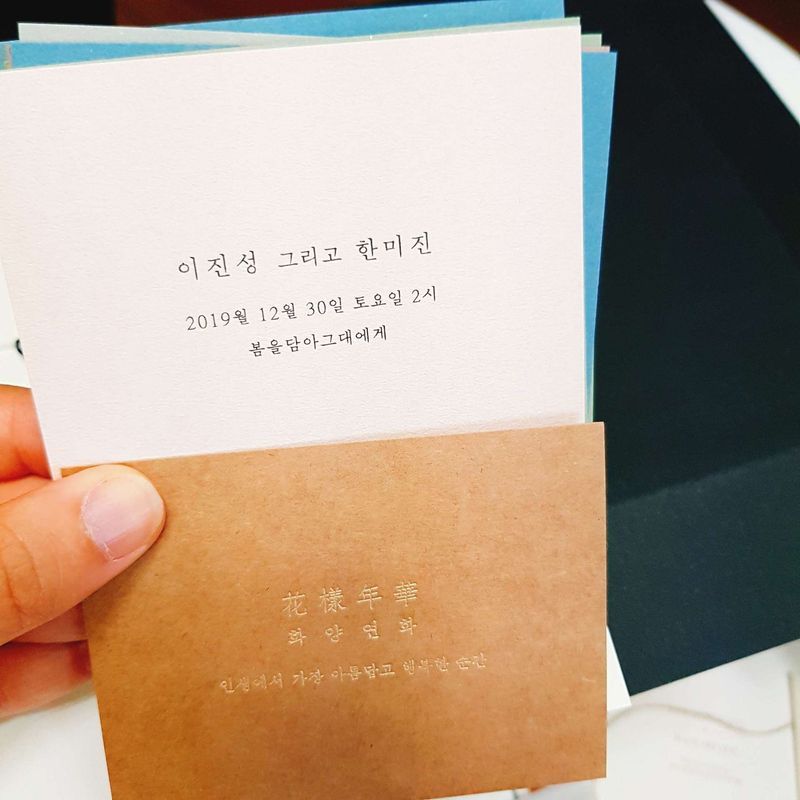 이진성 그리고 한미진
2019월 12월 30일 토요일 2시
봄을담아그대에게
花樣年華
화양연화
인생에서 가장 아름답고 행복한 순간